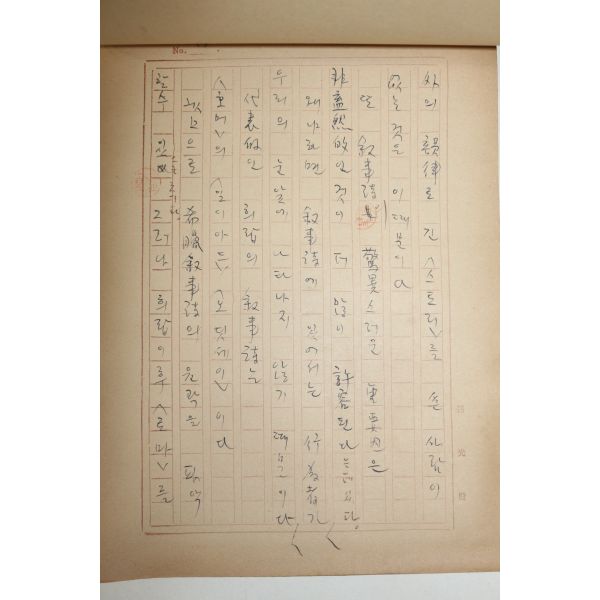 No.
外의 韻律로 긴 <스토리>를 쓴 사람이
없는 것은 이 때문이다
또 敍事詩 驚異스러운 重要因은
非盖然的인 것이 더 많이 許容된다
왜냐하면 敍事詩에 있어서는 行爲者가
우리의 눈앞에 나타나지 않기 때문이다
代表的인 희랍의 敍事詩는
<호머>의 <일이아드> <오딧세이> 이다
것으로 希臘敍事詩의 윤곽을 파악
할수 있 그러나 희랍이후 <로마>를